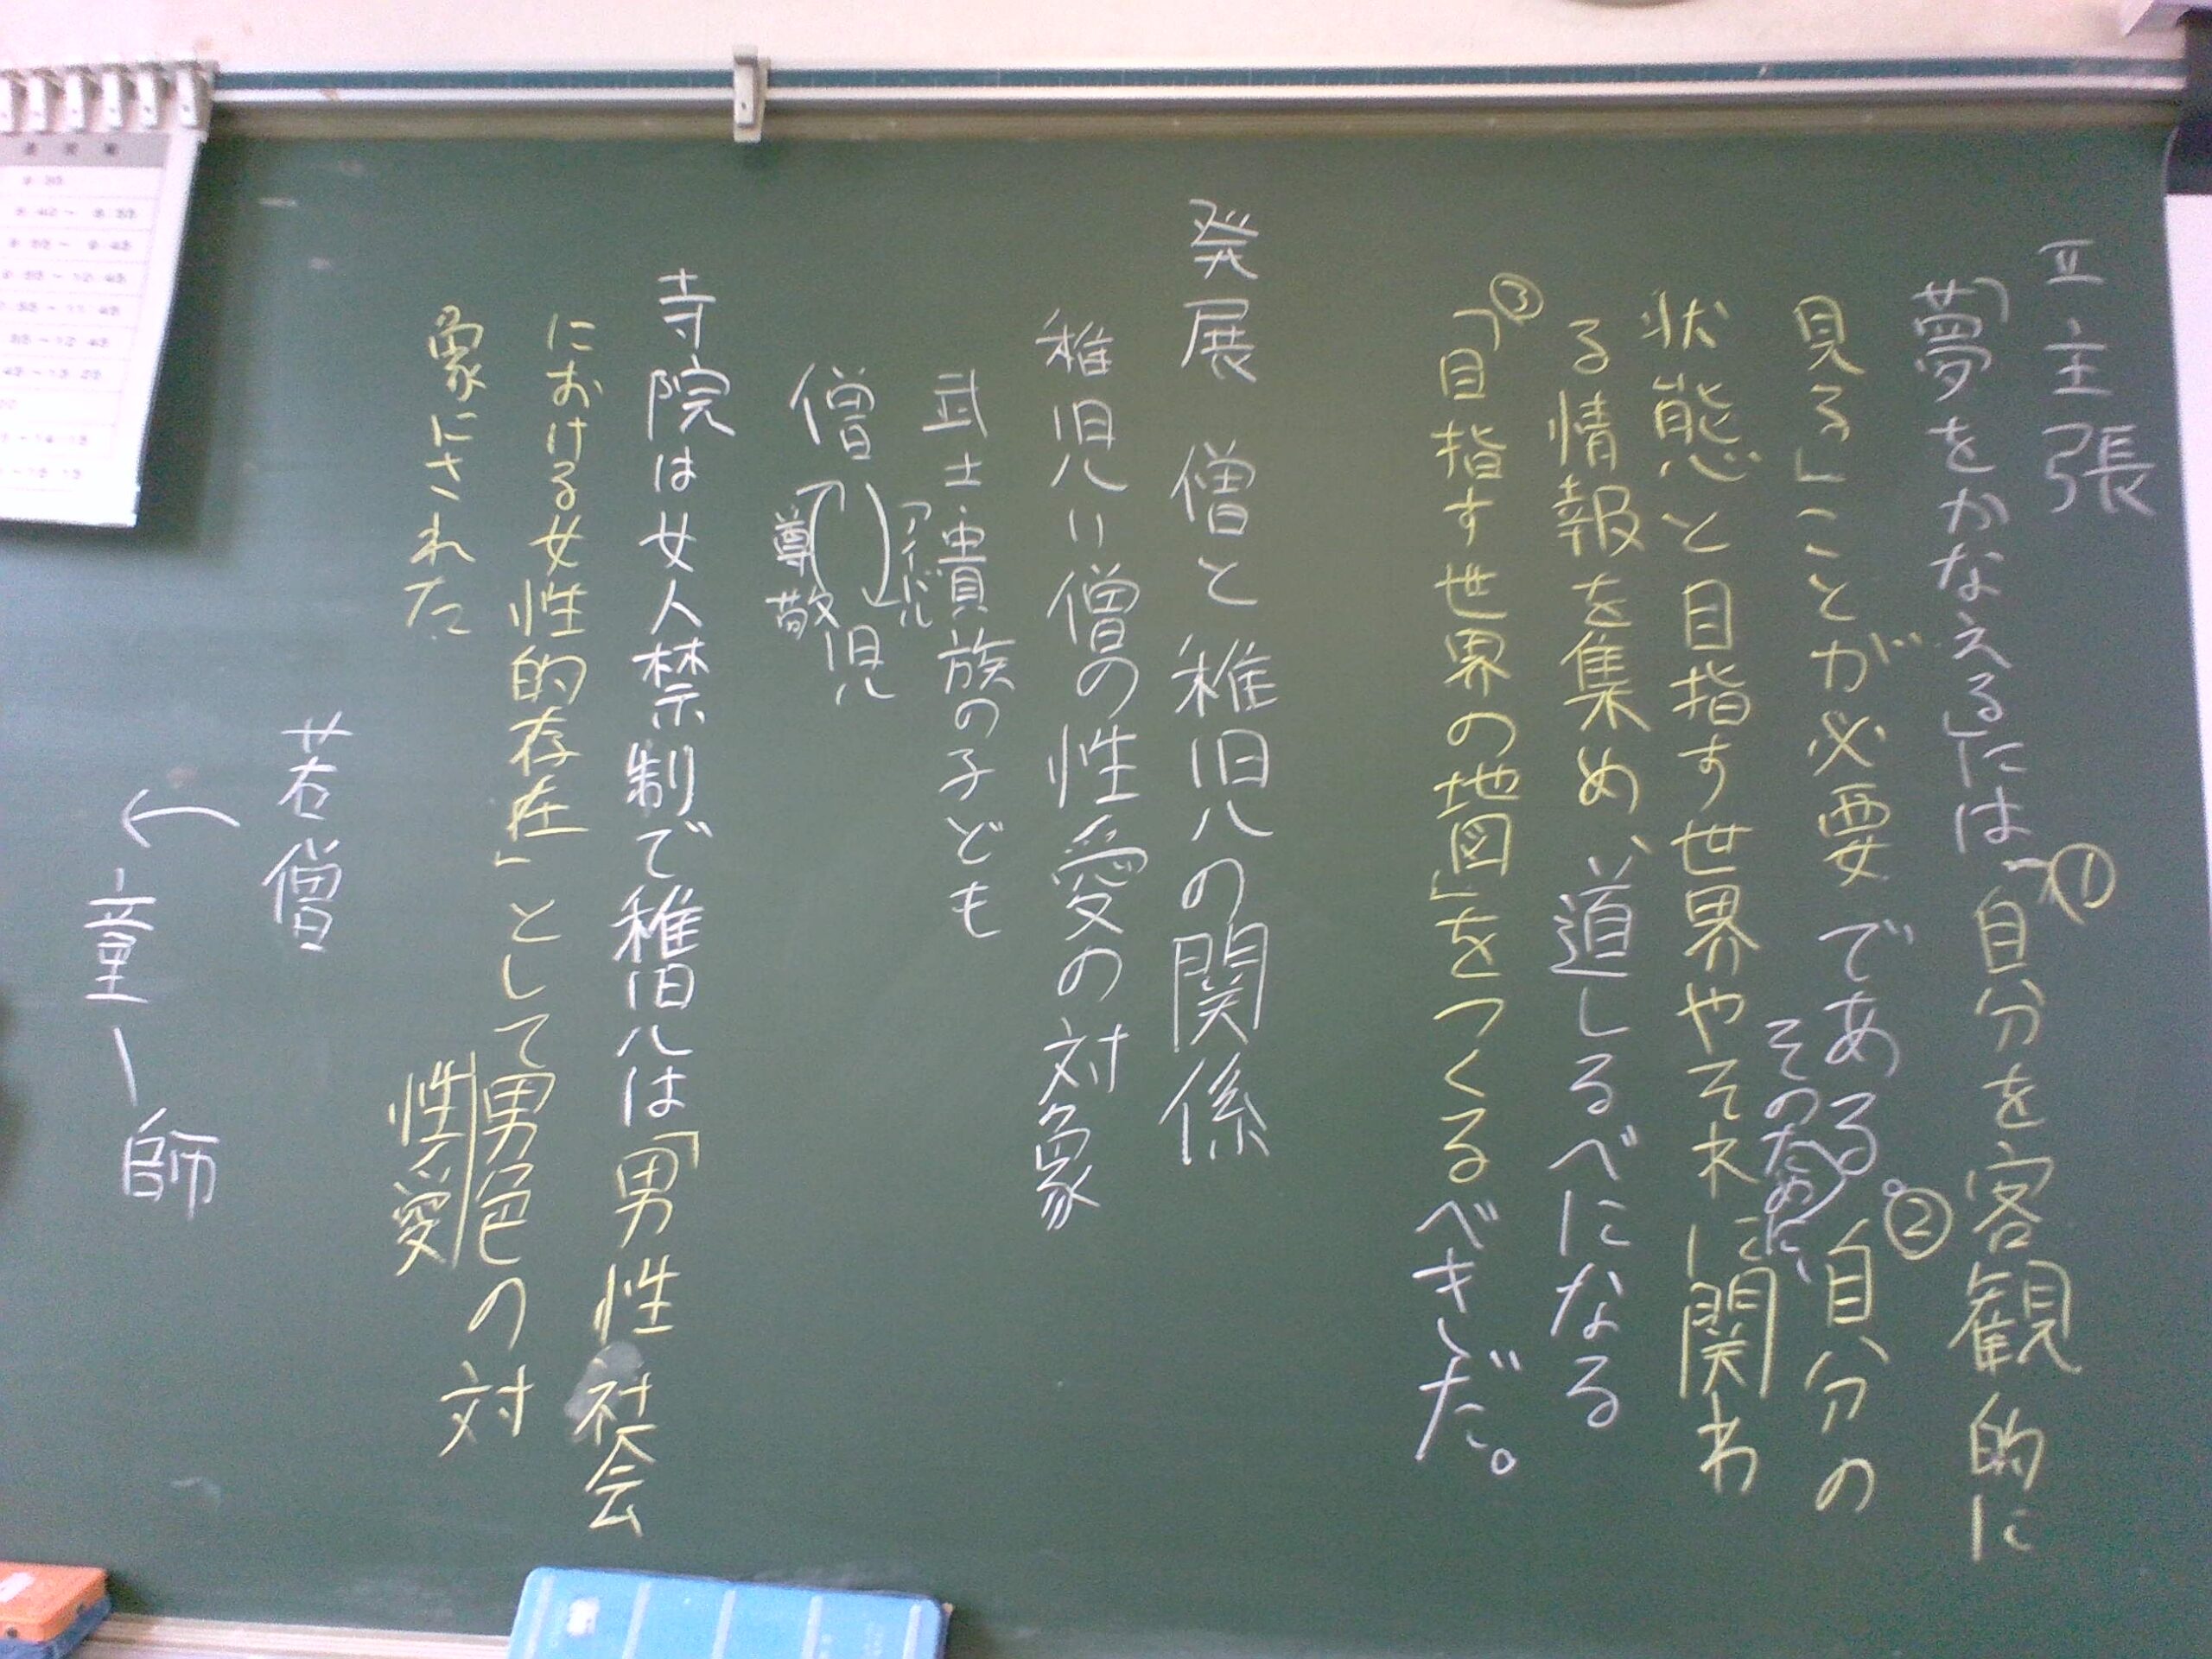 Ⅱ 主張
「夢をかなえる」には①「自分を客観的に
見る」ことが必要である。②自分の
そのために、
状態と目指す世界やそれに関わ
る情報を集め、道しるべになる
③「目指す世界の地図」をつくるべきだ。
発展 僧と稚児の関係
稚児=僧の性愛の対象
武士・貴族の子ども
アイドル
僧 児
尊敬
寺院は女人禁制で稚児は「男性社会
における女性的存在」として男色の対
性愛
象にされた
若僧
童ー師